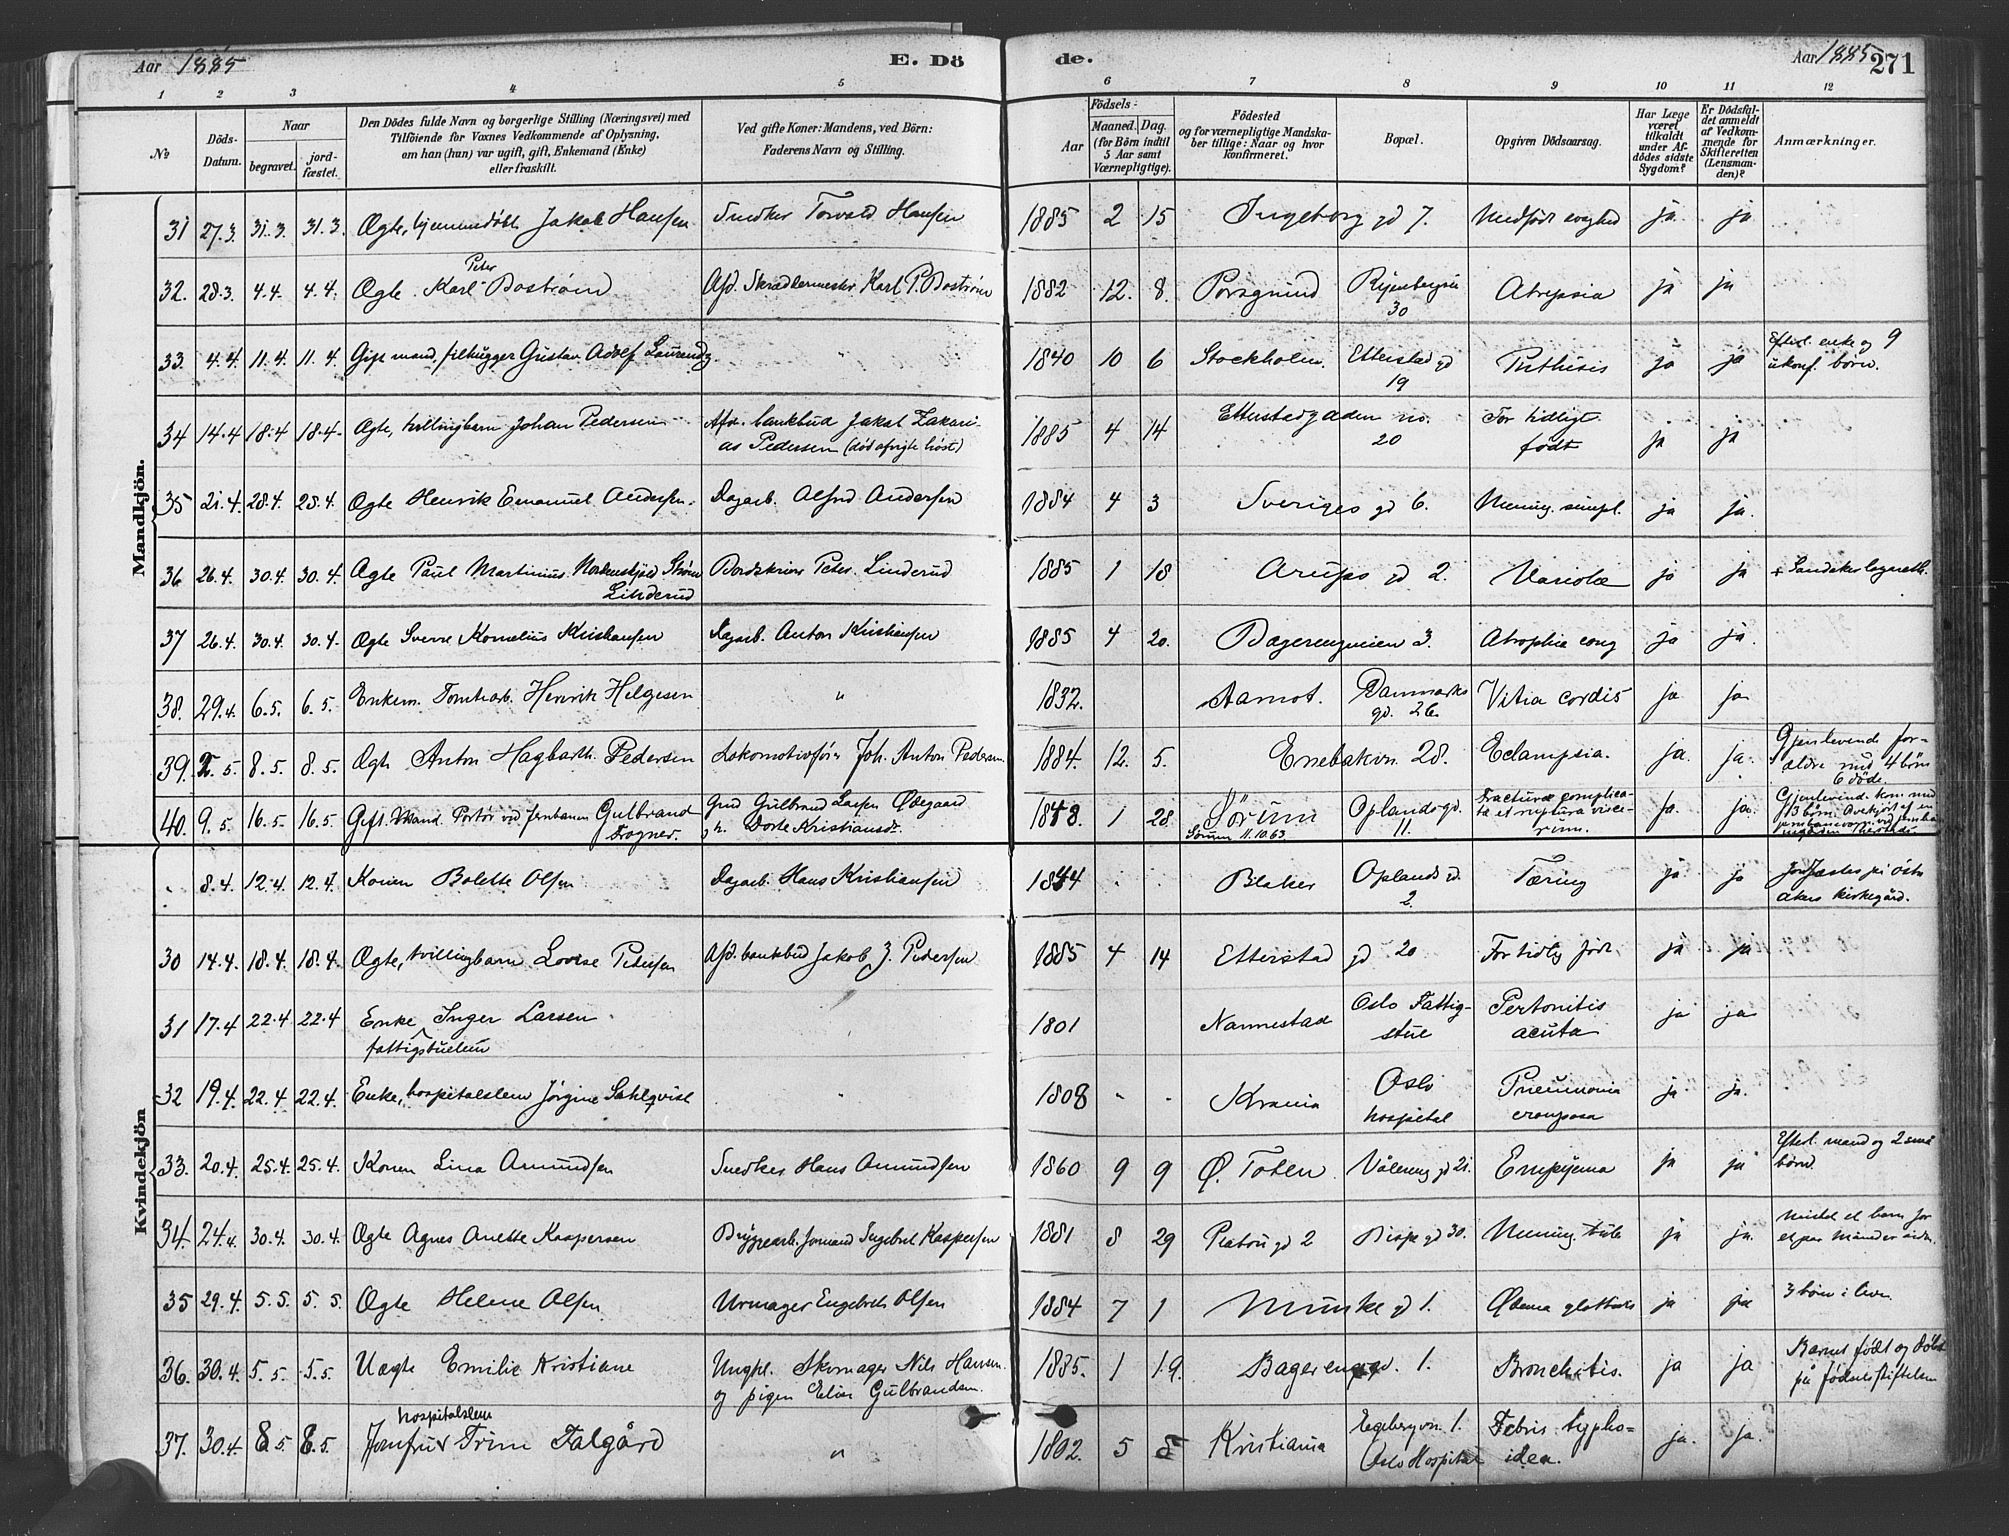 Aar 1885 E. Dö de. Aar 1885 271
1 2 3 4 5 6 7 8 9 10 11 12
№
Döds-
Datum.
Naar
begravet.
jord-
fæstet.
Den Dödes fulde Navn og borgerlige Stilling (Næringsvei) med
Tilföiende for Voxnes Vedkommende af Oplysning,
om han (hun) var ugift, gift, Enkemand (Enke)
eller fraskilt.
Ved gifte Koner: Mandens, ved Börn:
Faderens Navn og Stilling.
Födsels-
Aar
Maaned. Dag.
(for Börn indtil
5 Aar samt
Værnepligtige).
Födested
og for værnepligtige Mandska-
ber tillige: Naar og hvor
konfirmeret.
Bopæl.
Opgiven Dödsaarsag.
Har Læge
været
tilkaldt
under Af-
dödes sidste
Sygdom?
Er Dödsfal-
det anmeldt
af Vedkom-
mende for
Skifteretten
(Lensman-
den)?
Anmærkninger.
Mandkjön.
31 27.3. 31.3. 31.3. Ægte, hjemmedøbt Jakob Hansen Snedker Torvald Hansen 1885 2 15 Ingeborg gd 7. Medfødt svaghed ja ja
Peter
32. 28.3. 4.4. 4.4. Ægte Karl Bostrøm Afd. Skrædlermester Karl P. Bostrøm 1882 12. 8. Porsgrund 30 Atrepsia ja ja
33. 4.4. 11.4. 11.4. Gift mand, filhugger Gustav Adolf " 1840 10 6 Stockholm. Etterstad gd 19 Phthisis ja ja Efterl. enke og 9
ukonf. børn.
34 14.4 18.4 18.4. Ægte, tvillingbarn Johan Pedersen Afd. bankbud Jakob Zakari-
as Pedersen (død afvigte høst) 1885 4 14 Etterstadgaden no. 20 For tidligt
født ja ja
35 21.4. 28.4. 28.4. Ægte Henrik Emanuel Andersen. Dagarb. Alfred Andersen 1884 4 3 Sveriges gd 6. Mening. simpl. ja ja.
36 26.4. 30.4. 30.4. Ægte Paul Martinius Strøm
Linderud Peter Linderud 1885 1 18 Arups gd 2. Variolæ ja ja
37 26.4. 30.4. 30.4. Ægte Sverre Kornelius Kristiansen Dagarb. Anton Kristiansen 1885 4 20. 3. Atrophia cong ja ja.
38. 29.4. 6.5. 6.5. Enkem. Tomtearb. Henrik Helgesen " 1832. Aamot. Danmarks
gd. 26. Vitia cordis ja ja
39. 2.5. 8.5. 8.5. Ægte Anton Hagbarth Pedersen Lokomotivfører Joh. Anton Pedersen. 1884. 12. 5. Enebakvn. 28. Eclampsia. ja. ja. Gjenlevende for-
ældre med 4 børn
6 døde.
40. 9.5. 16.5. 16.5. Gift Mand. Portør ved Jernbanen Gulbrand
Frogner. Grd Gulbrand Larsen Ødegaard
Dorte Kristiansdr. 1848. 1 28. Sörum
Sörum 11.10.63 Oplandsgd.
11. Fracturæ complica-
ta et ruptura visce-
rum. ja. ja. Gjenlevend. kon. med
Kvindekjön
8.4. 12.4. 12.4. Konen Bolette Olsen Dagarb. Hans Kristiansen 1844 Blaker Oplands gd.
2. Tæring ja ja Jordfæstes på Østre
Akers kirkegård.
30 14.4. 18.4. 18.4. Ægte, tvillingbarn Lovise Pedersen Afd. bankbud Jakob Z. Pedersen 1885 4 14 Etterstad gd 20 For tidlig født ja ja
31 17.4 22.4 22.4 Enke Inger Larsen
fattigstuelem 1801 Nannestad Oslo Fattig-
stue Pertonitis
acuta ja ja
32 19.4. 22.4. 22.4. Enke, hospitalslem Jørgine Sahlqvist 1808 Krania Oslo
hospital Pneumonia
crouposa ja ja.
33. 20.4. 25.4. 25.4. Konen Lina Amundsen Snedker Hans Amundsen 1860 9 9 Ø. Toten Vålereng gd 21. Empyema ja ja Efterl. mand og 2 små
børn.
34. 24.4. 30.4. 30.4. Ægte Agnes Anette Kaspersen Bryggearb. formand Ingebret Kaspersen 1881 8 29 Platou gd 2 Bispe gd 30. Mening. tub. ja ja. Mistet et barn for
et par måneder siden.
35 29.4. 5.5. 5.5. Ægte Helene Olsen Urmager Engebreth Olsen 1884 7 1 Munke gd 1. Ødema glottidis ja ja 3 børn i live.
36. 30.4. 5.5. 5.5. Uægte Emilie Kristiane Ungkl. Skomager Nils Hansen
og pigen Elise Gulbrandsen. 1885. 1 19. 1. Bronchitis. ja ja Barnet født og døbt
på fødselsstiftelsen
hospitalslem
37. 30.4. 8.5. 8.5. Jomfru Trine Falgård " 1802. 5 5 Kristiania Egebergvn. 1.
Oslo Hospital Febris typho-
idea. ja. ja.